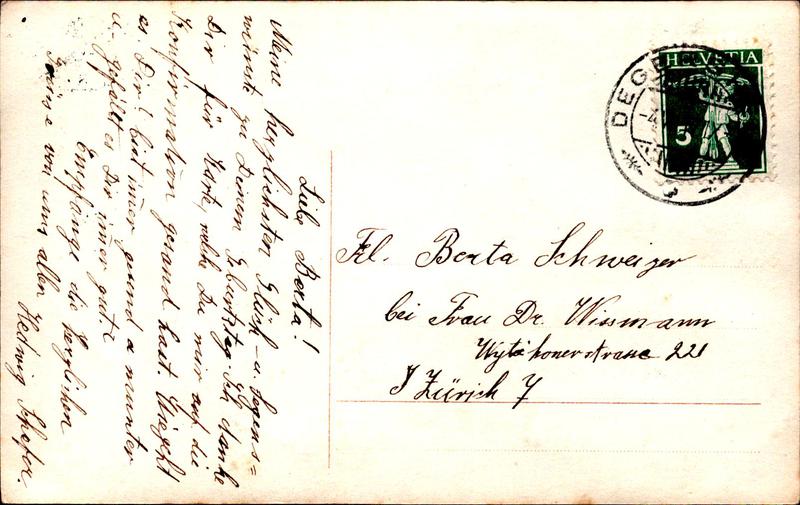 Liebe Berta!
Meine herzlichsten Glück- u. Segens=
wünsche zu Deinem Geburtstag. Ich danke
Dir für Karte, welche Du mir auf die
Konfirmation gesand hast. Wie geht
es Dir? bist immer gsund u munter
u. gefällt es Dir immer gut?
Empfange die herzlichen
Grüsse von uns allen
Hedwig
HELVETIA
5
DEGE
Frl. Berta Schweizer
bei Frau Dr. Wissmann
Wytikonerstrasse 221
Zürich 7